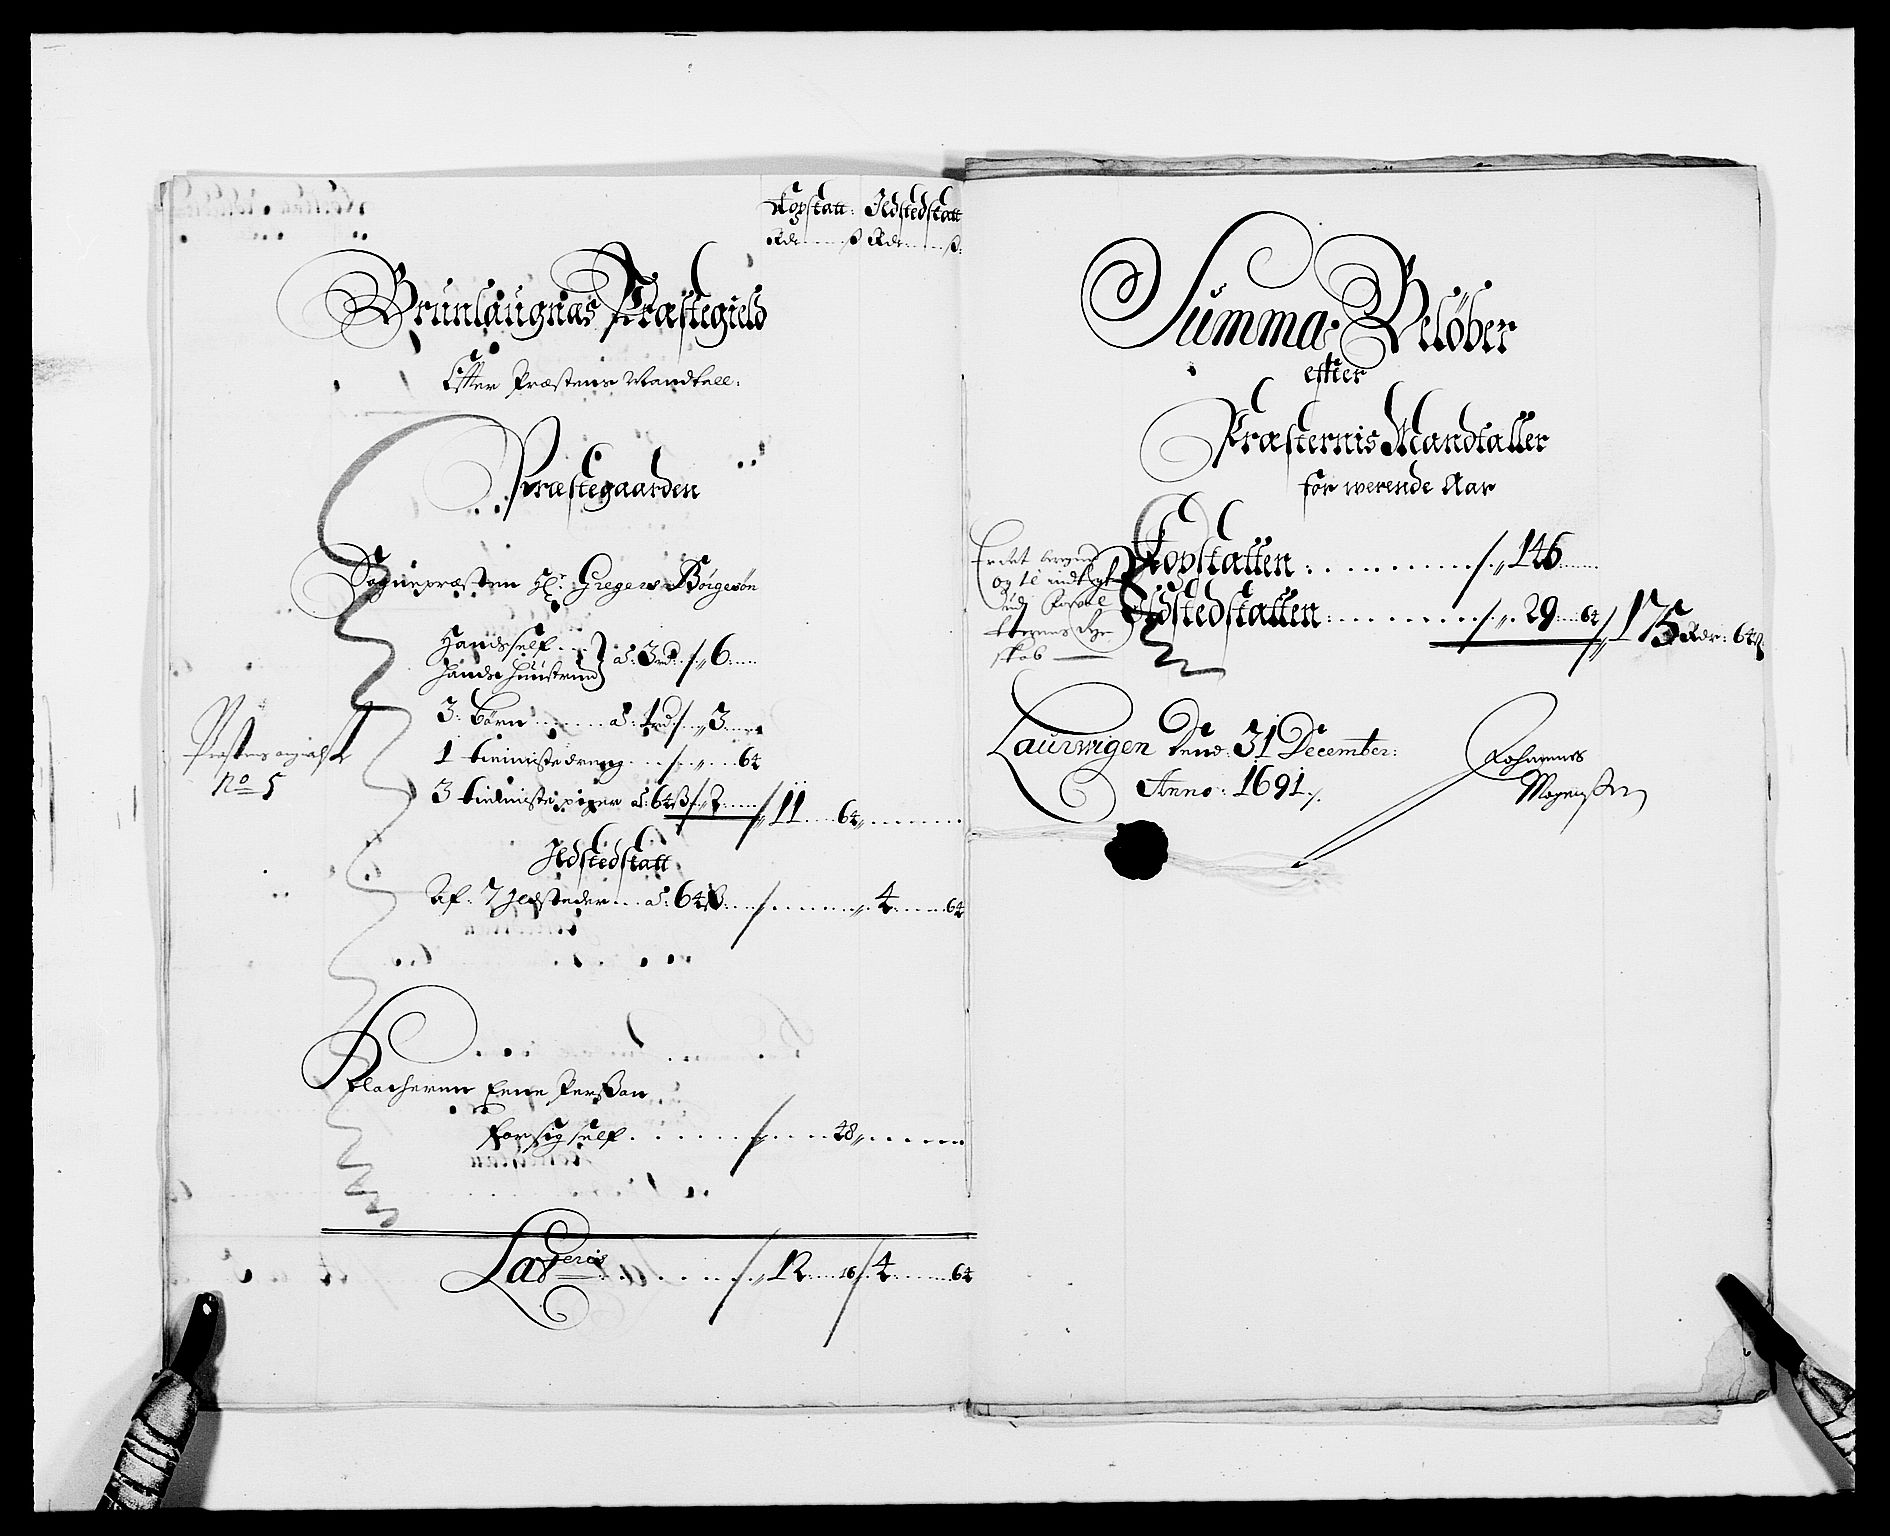 Kopstatt: Ildstedstatt
Rdr ß Rdr ß
Brunlaugnæs Præstegield
Effter Præstens Mandtall:
Præstegaarden
Sognepræsten Hr Gregers Börgesön
Hands self
Hands Huustrue } a: 3 rd: 6
3: börn a: 1 rd 3
1 tienniste dreng 64
3 tienniste piger a: 64 ß 2 11 64
Præstens
no 5
Ildstedstatt
Af: 7 Ildsteder a: 64 ß 4 64
for sig self 48
Lateris 12 16 4 64
Summa Belöber
effter
Præsternis Mandtaller
for werende Aar
Kopstatten: 146
Ildstedstatten: 29 64 175 Rdr: 64 ß
Er det
og til indtegt
udi
skab
Laurwigen Dend: 31 December:
Anno: 1691
Johannes
Mogensen